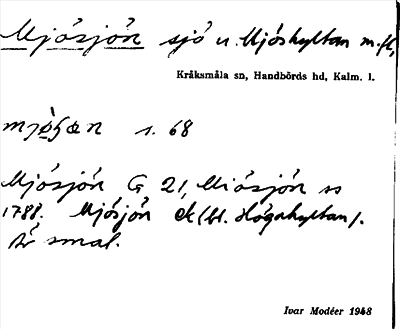 Mjösjön sjö u. Mjöshyltan m.fl.,
Kråksmåla sn, Handbörds hd, Kalm. l.
s. 68
Mjösjön G 21, Miösjön ss
1788. Mjösjön ek (bl. Högahyltan).
Är smal.
Ivar Modéer 1948